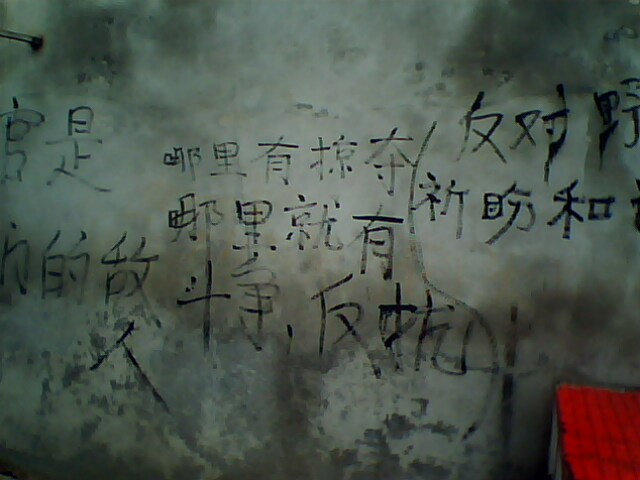 官是
的敌
人
哪里有掠夺
哪里就有
斗争,反抗
反对野
祈盼和